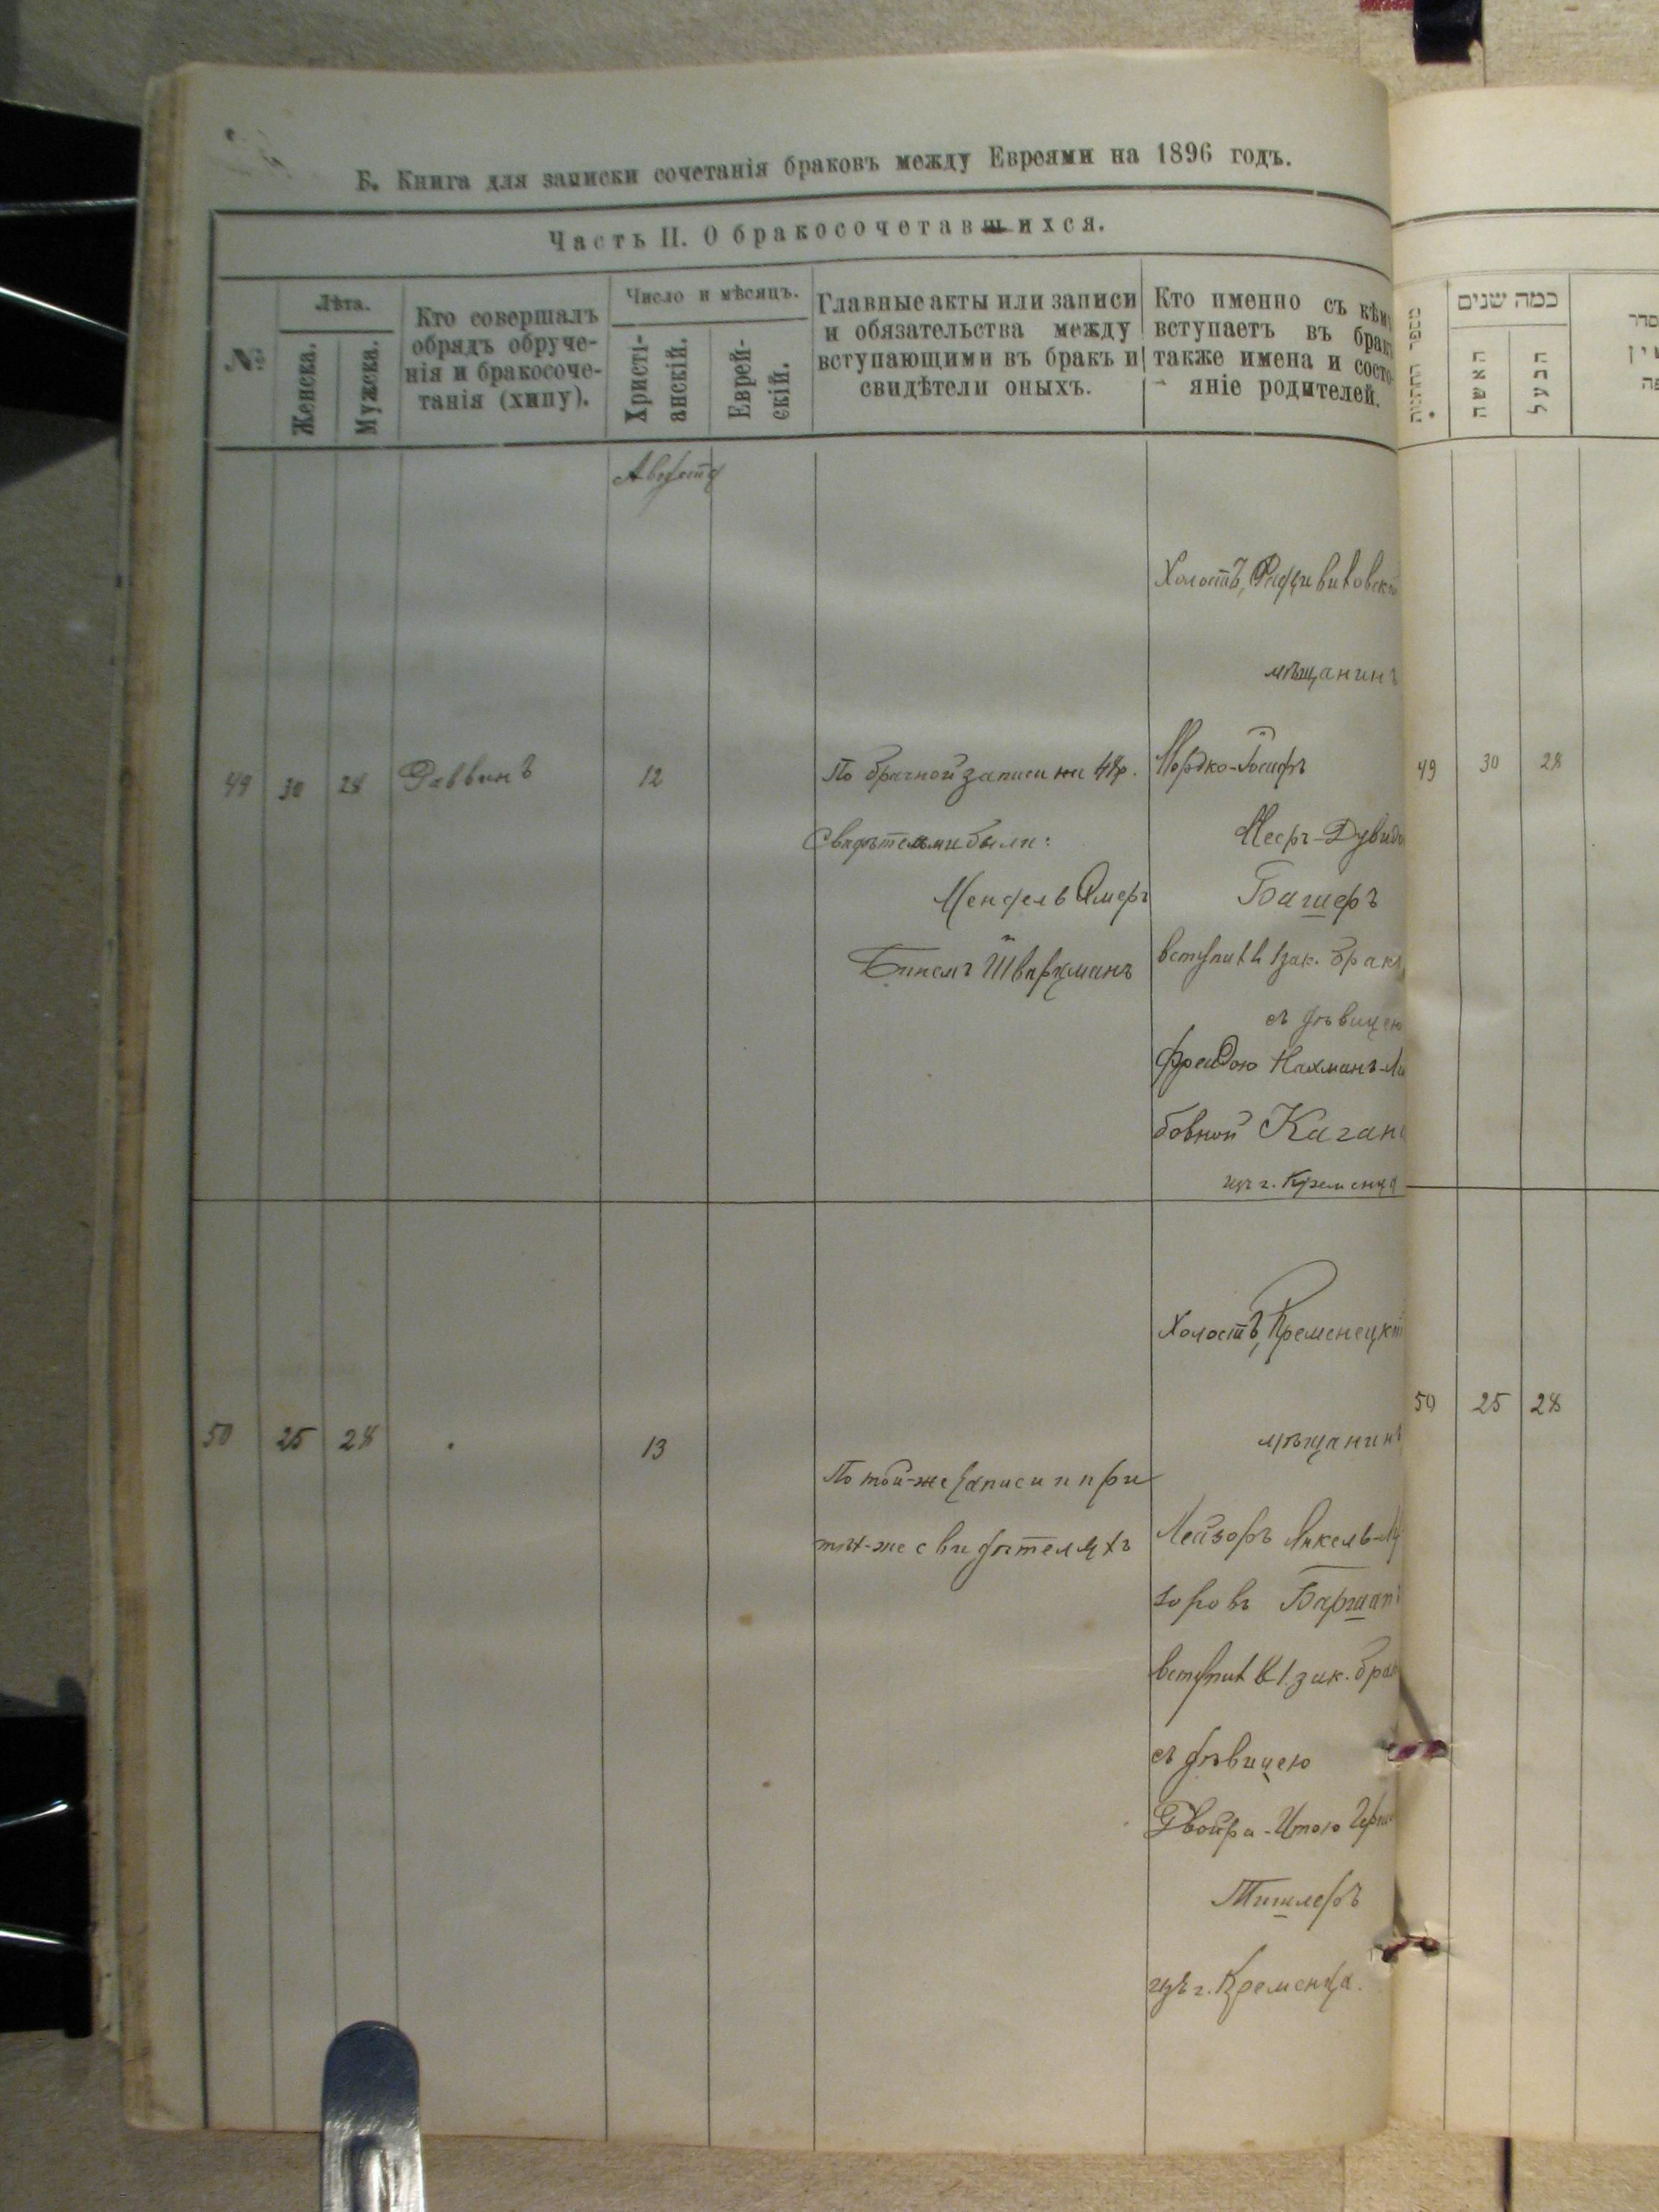 Б. Книга для записки сочетанія браковъ между Евреями на 1896 годъ.
Часть II. О бракосочетавшихся.
№
Лѣта.
Женска.
Мужска.
Кто совершалъ
обрядъ обруче-
нія и бракосоче-
танія (хипу).
Число и мѣсяцъ.
Христі-
анскій.
Еврей-
скій.
Главные акты или записи
и обязательства между
вступающими въ бракъ и
свидѣтели оныхъ.
Кто именно съ кѣмъ
вступаетъ въ бракъ
также имена и состо-
яніе родителей.
כמה שנים
האשה
הבעל
Августа
49 30 28 Раввинъ 12
По брачной записи на 48р.
Свидѣтельми были:
Мендель
Шварцманъ
Холостъ,
мѣщанинъ
Мордко-Іосифъ
Мееръ-Дувидъ
Башеръ
вступилъ 1 зак. бракъ
съ дѣвицею
Фрейдою Нахманъ-Ли
бовной Каганъ
изъ г. Кременца
49 30 28
50 25 28 13
По той-же записи и при
тѣхъ-же свидѣтеляхъ
Холостъ, Кременецкій
мѣщанинъ
Лейзоръ Янкель-
зоровъ
вступил в 1. зак. брак
съ дѣвицею
Двойра-Итою
Тишлеръ
изъ г. Кременца.
50 25 28